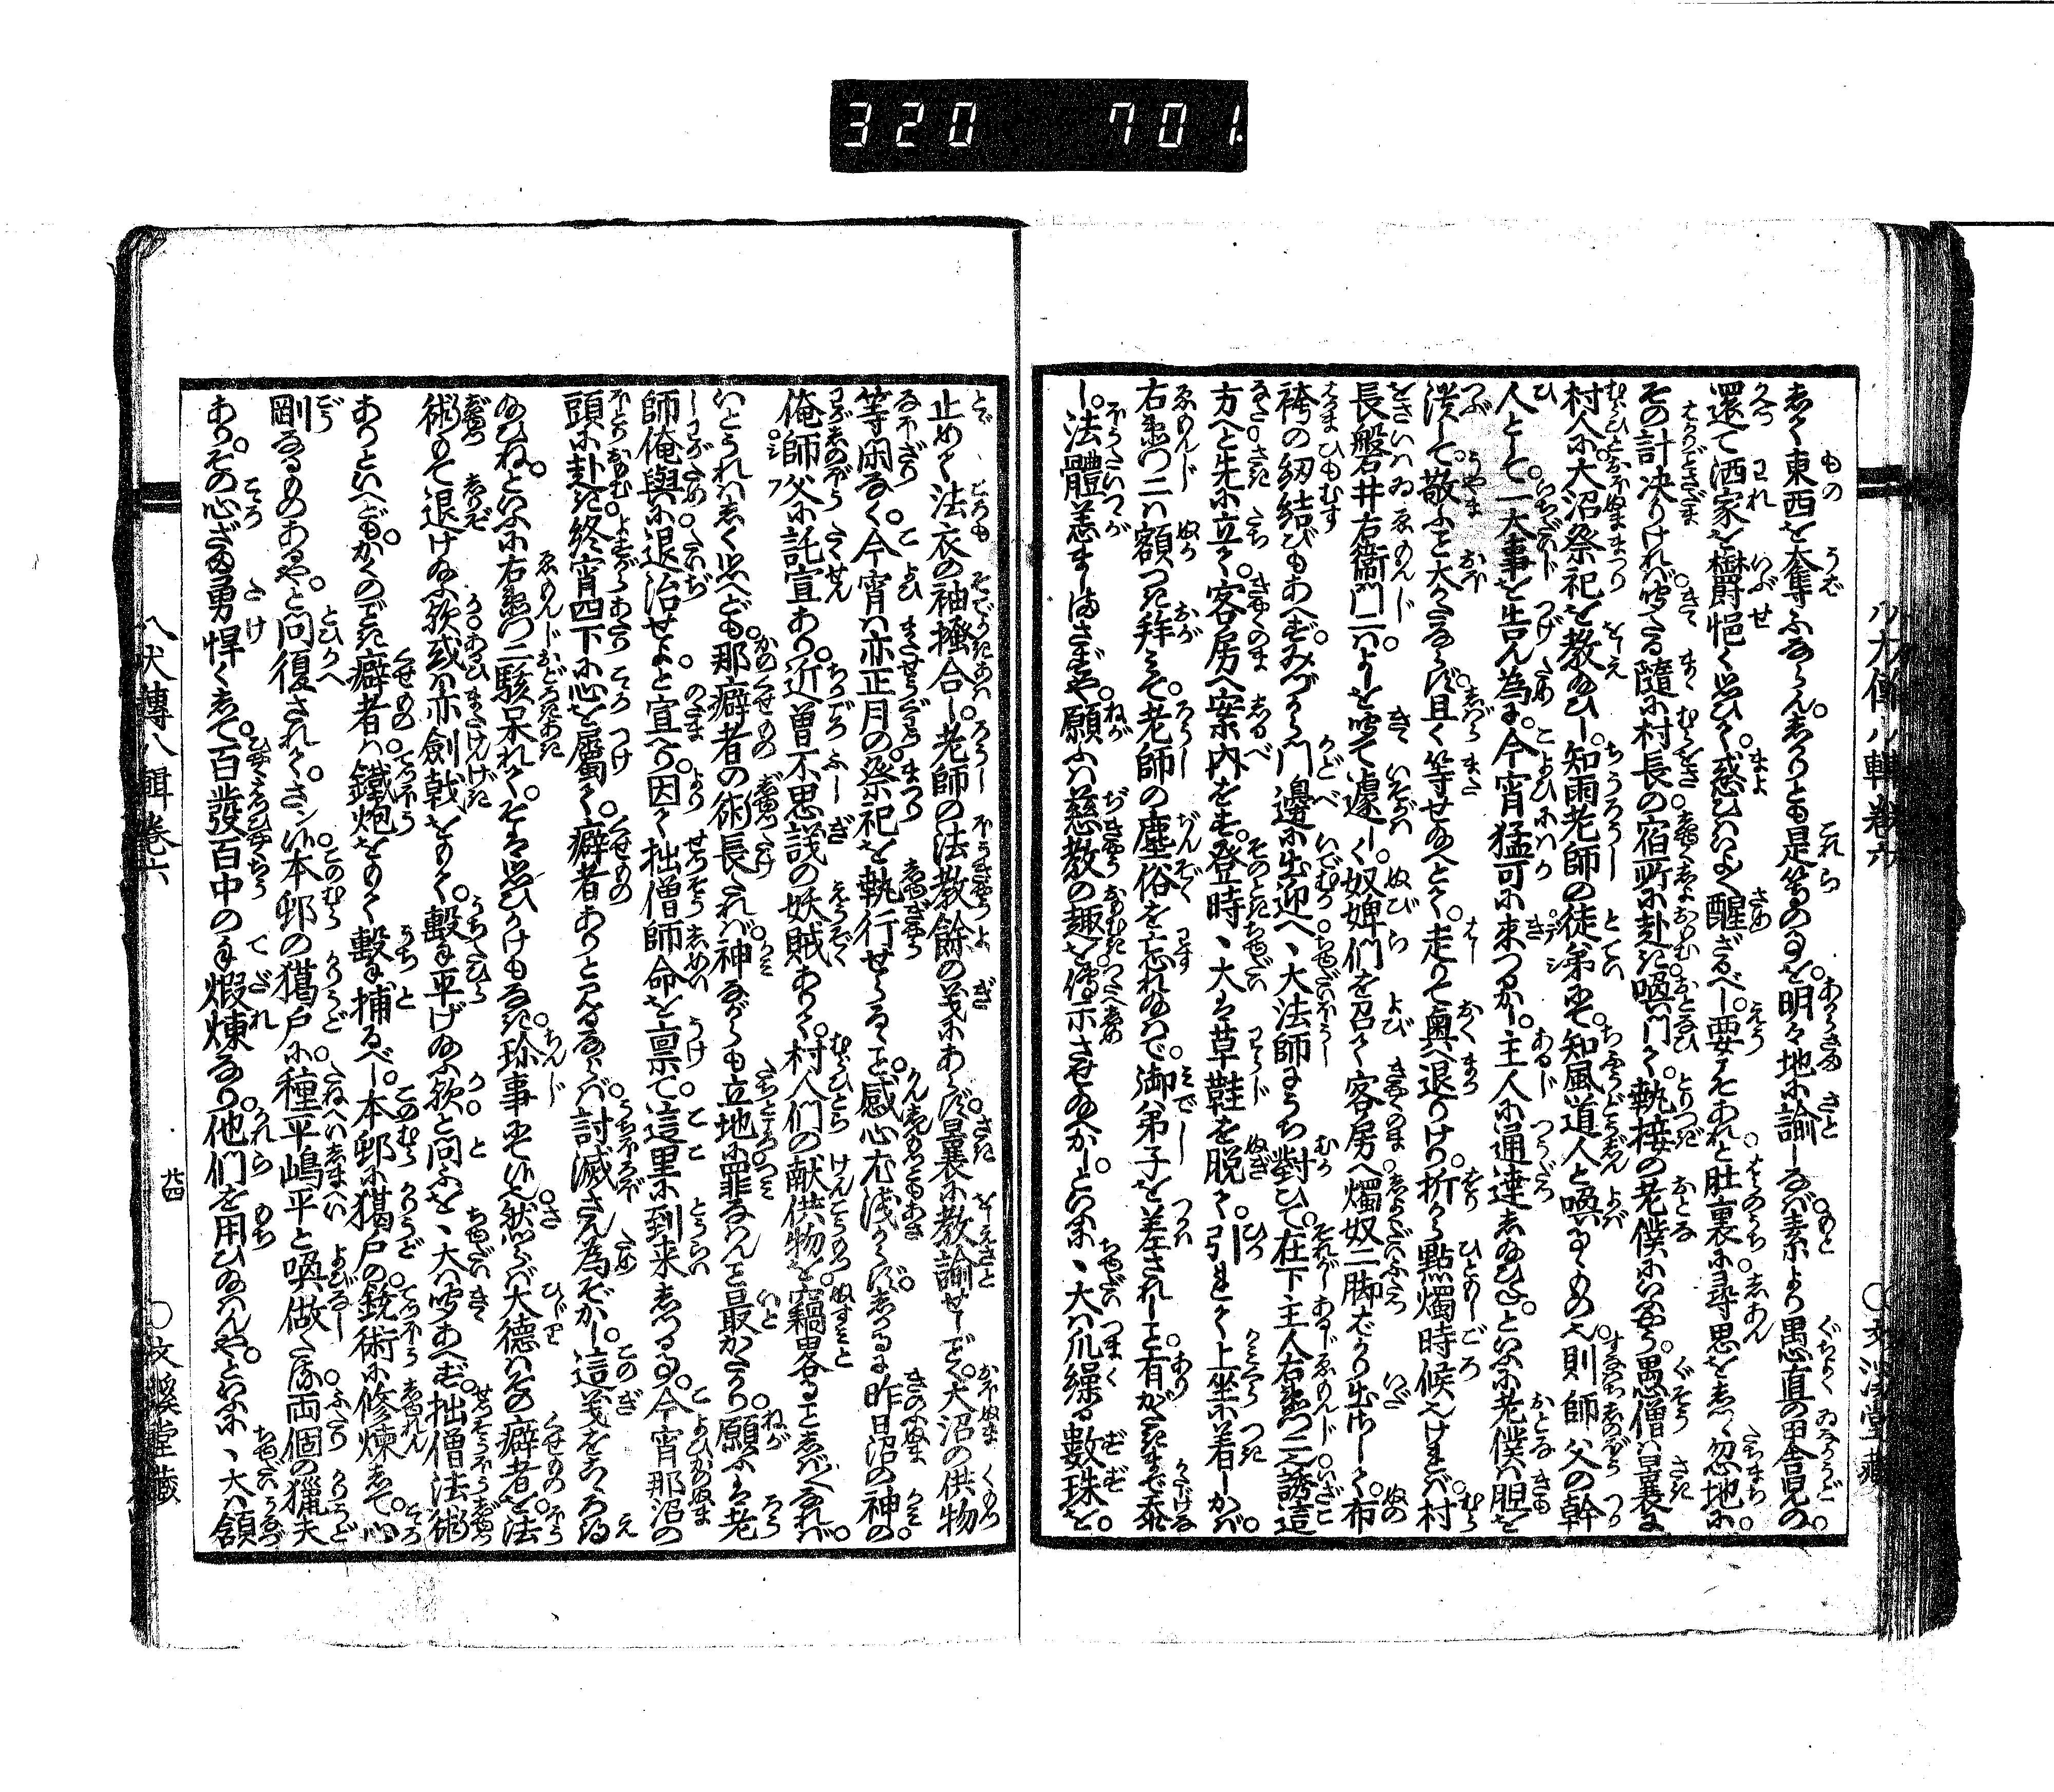 320 701.
八犬傳八輯卷六
○文溪堂藏
あく東西を奪ふならん。しかりとも是等のよしを。明々地に諭しなば素より愚直の田舎児の。
還て洒家を欝悒く思ひて。惑ひはよく醒ざるべし。要こそあれと肚裏に尋思をしつゝ忽地に。
その計决りければ。咳たる隨に村長の宿所に赴き喚門て。執接の老僕にいふやう。愚僧は曩に
村人に。大沼祭祀を教給ひし。知雨老師の徒弟にて。知風道人と喚るゝもの也。則師父の幹
人として。一大事を告ん為に。今宵猛可に来つるかし。主人に通達し給ひね。といふに老僕は胆を
潰して。敬ふこと大かたならず。且く等せ給へとて。走りて奥へ退りけり。折から點燭時候なければ。村
長磐井右衞門二はよしを咳て遽しく。奴婢們を召て客房へ燭奴二脚ばかり出さして。布
袴の紐結びもあへず。みづから門邊に出迎へ、大法師にうち對ひて。在下主人右衞門二也誘這
方へと先に立て。客房へ案内をす。登時、大は草鞋を脱て。引れて上坐に着しかば。
右衞門二は額つき拜みて。老師の塵俗を忘れ給はで。御弟子を差されしこと。有がたきまで忝
し。法體恙ましまさずや。願ふは慈教の趣を。傳示させ給へかし。といふに、大は爪繰る數珠を。
止めて法衣の袖掻合し。老師の法教餘の義にあらず。曩に教諭せしごとく。大沼の供物
等閑なく。今宵は亦正月の。祭祀を執行せらるゝこと。感心尤浅からず。しかるに昨日沼の神の
俺師父に託宣あり。近曽不思議の妖賊ありて。村人們の献供物を。竊畧ることしば〱なれば。
いとうれはしく思へども。那癖者の術長たれば。神ながらも立地に罪なはんこと最かたかり。願ふは老
師俺與に退治せよと宣へり。因て拙僧師命を禀て。這里に到来しつる也。今宵那沼の
頭に赴き終宵四下に心を屬て。癖者ありと見るならば。討滅さん為ぞかし。這義をこゝろ得
給ひね。といふに右衞門二駭き呆れて。そは思ひかけもなき。珍事にて候也。然らば大德はその癖者を。法
術もて退け給ふ歟。或は亦劍戟をもて。擊に平げ給ふ歟と問ふを、大は咳あへず。拙僧法術
ありといへども。かくのごとき癖者は。鐵炮をもて擊に捕るべし。本邨に獦戸の。銃術に修煉して。心
剛なるものあるや。と問復されて。さン候。本邨の獦戸に。種平嶋平と喚做たる。両個の獵夫
あり。その心ざま勇悍くして。百發百中の手煆煉なり。他們を用ひ給はんや。といふに、大は領
八犬傳八輯卷六
廿四
○文溪堂藏